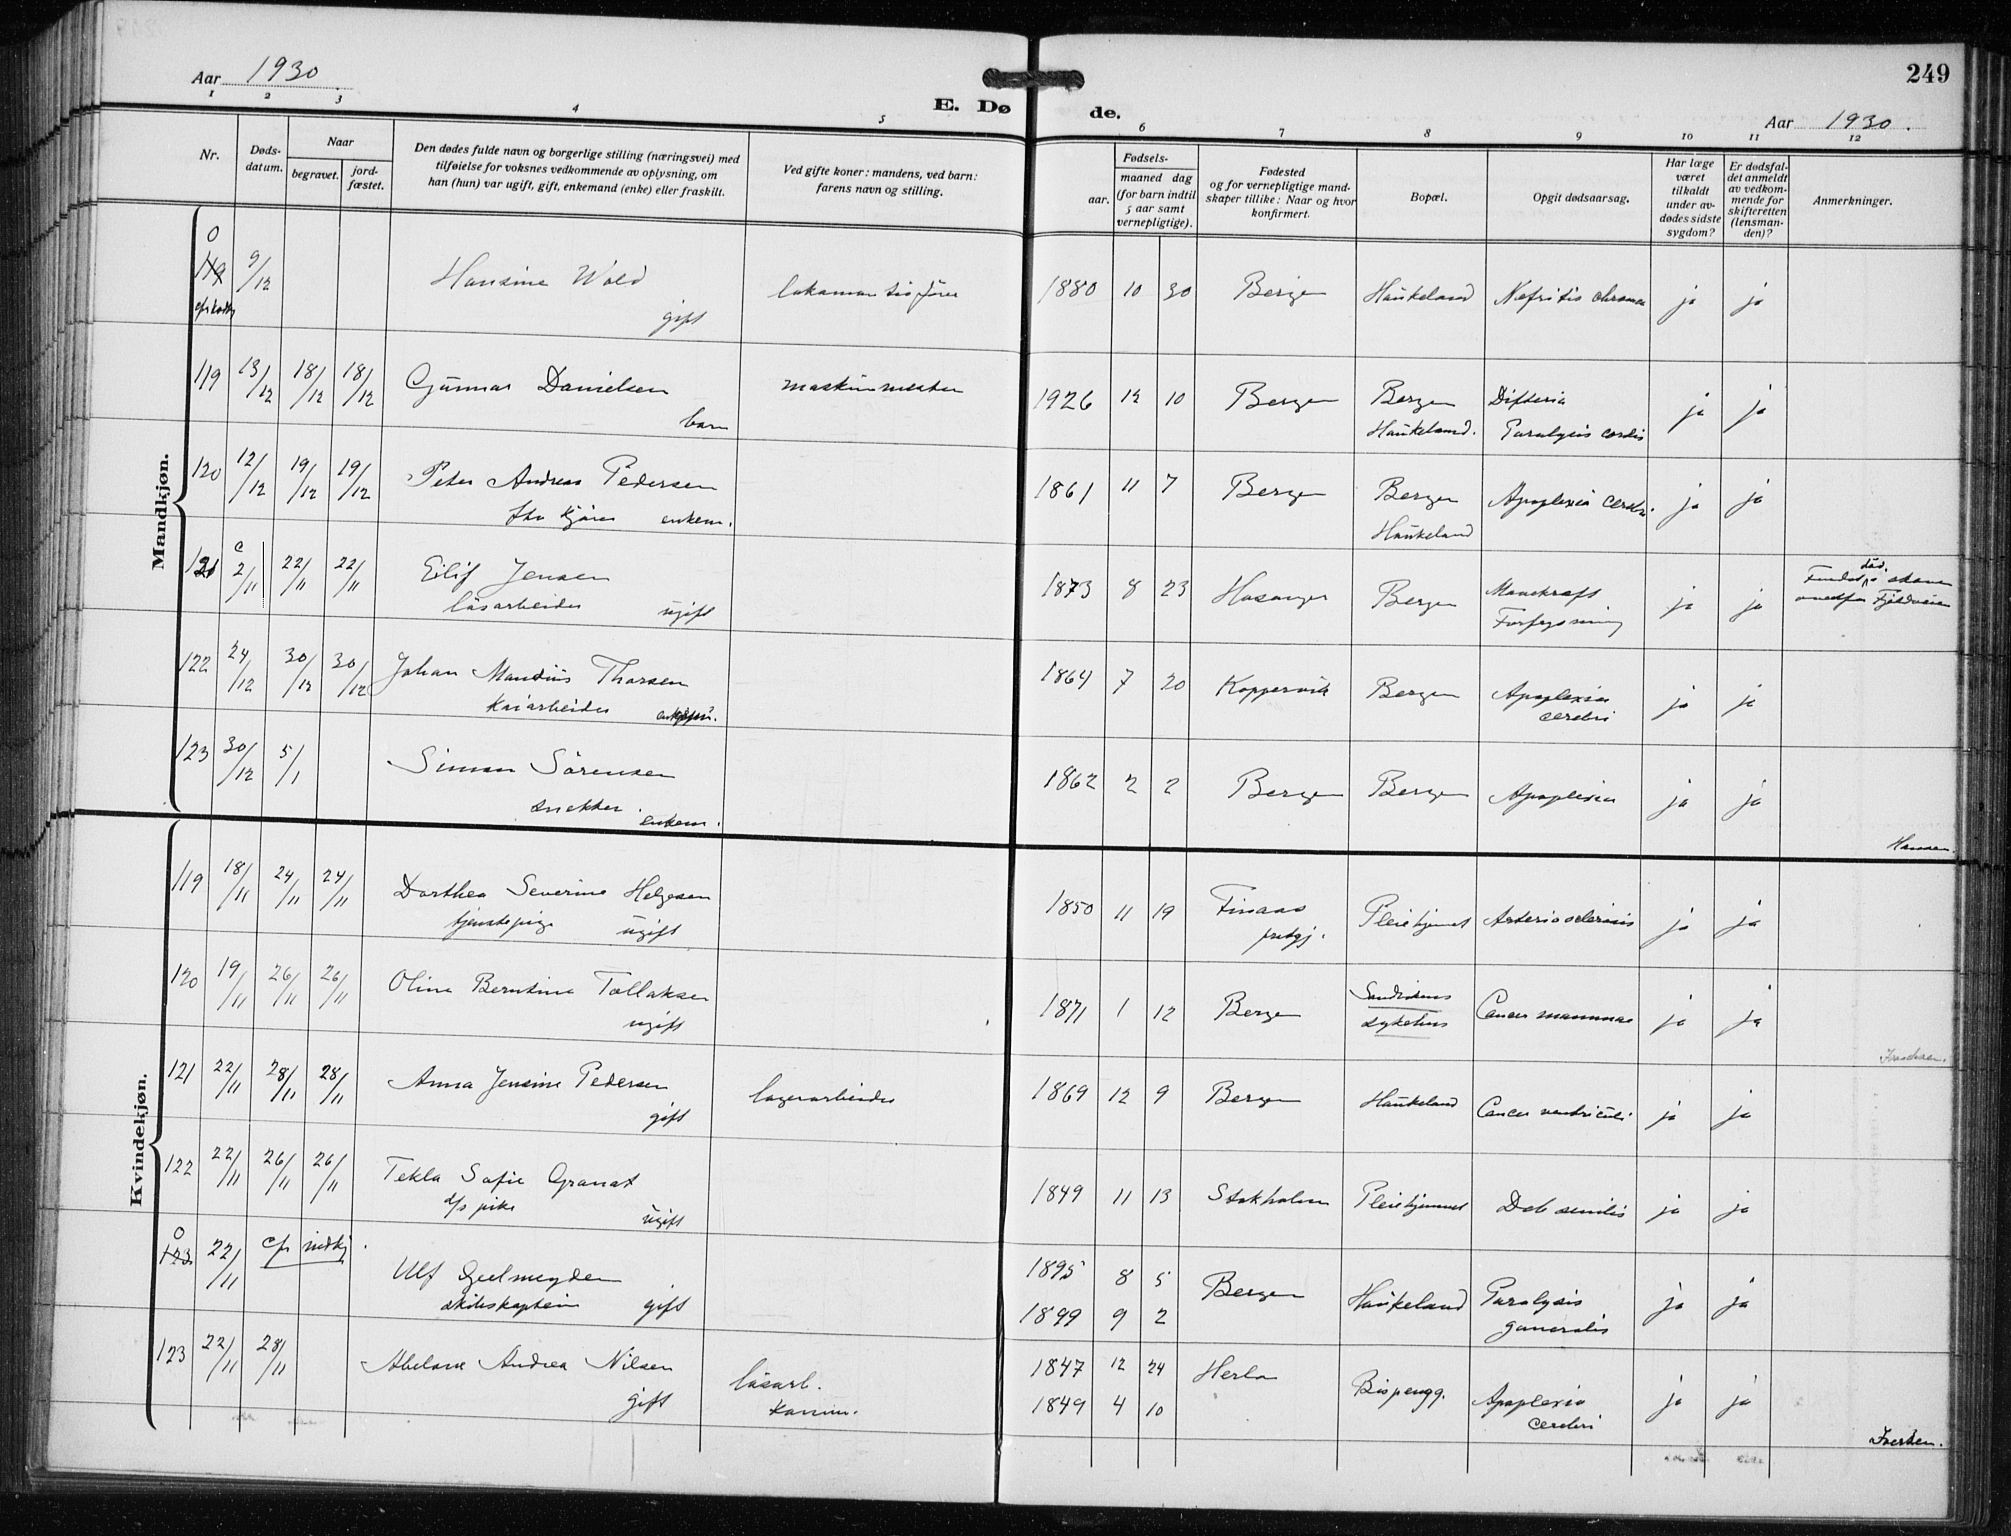 249
Aar 1930
E. Dø
de.
Aar 1930.
1 2 3 4 5 6 7 8 9 10 11 12
Nr.
Døds-
datum.
Naar
begravet.
jord-
fæstet.
Den dødes fulde navn og borgerlige stilling (næringsvei) med
tilføielse for voksnes vedkommende av oplysning, om
han (hun) var ugift, gift, enkemand (enke) eller fraskilt.
Ved gifte koner: mandens, ved barn:
farens navn og stilling.
Fødsels-
aar.
maaned dag
(for barn indtil
5 aar samt
vernepligtige).
Fødested
og for vernepligtige mand-
skaper tillike: Naar og hvor
konfirmert.
Bopæl.
Opgit dødsaarsag.
Har læge
været
tilkaldt
under av-
dødes sidste
sygdom?
Er dødsfal-
det anmeldt
av vedkom-
mende for
skifteretten
(lensman-
den)?
Anmerkninger.
Mandkjøn.
0
119 9/12 Hansine Wold 1880 10 30 Bergen Haukeland Nefritis ja ja
gift
119 13/12 18/12 18/12 Gunnar Danielsen maskinmester 1926 12 10 Bergen Bergen Difteria ja ja
barn Haukeland. Paralysis cordis
120 12/12 19/12 19/12 Peter Andreas Pedersen 1861 11 7 Bergen Bergen Apoplexia cerebri ja ja
enkem. Haukeland
121 2/11 22/11 22/11 Eilif Jensen 1873 8 23 Hosanger Bergen ja ja
løsarbeider ugift
122 24/12 30/12 30/12 Johan Mandius Thorsen 1864 7 20 Koppervik Bergen Apoplexia ja ja
Kaiarbeider enkem. cerebri
123 30/12 5/1 Simon Sørensen 1862 2 2 Bergen Bergen Apoplexia ja ja
snekker. enkem.
Hansen
Kvindekjøn.
119 18/11 24/11 24/11 Dorthea Severine Helgesen 1850 11 19 Finaas Pleiehjemmet Arteriosclerosis ja ja
tjenestepige ugift prstgj.
120 19/11 26/11 26/11 Oline Berntine Tollaksen 1871 1 12 Bergen Sandvikens Cancer mammae ja ja
ugift sykehus
121 22/11 28/11 28/11 Anna Jensine Pedersen lagerarbeider 1869 12 9 Bergen Haukeland Cancer ventriculi ja ja
gift
122 22/11 26/11 26/11 Tekla Sofie Granat 1849 11 13 Stokholm Pleiehjemmet Deb senilis ja ja
pike ugift
0
123 22/11 Ulf Geelmuyden 1895 8 5 Bergen Haukeland Paralysis ja ja
skibskaptein gift 1899 9 2 generalis
123 22/11 28/11 Abelone Andrea Nilsen løsarb. 1847 12 24 Herlø Bispengg. Apoplexia ja ja
gift 1849 4 10 cerebri
Iversen.